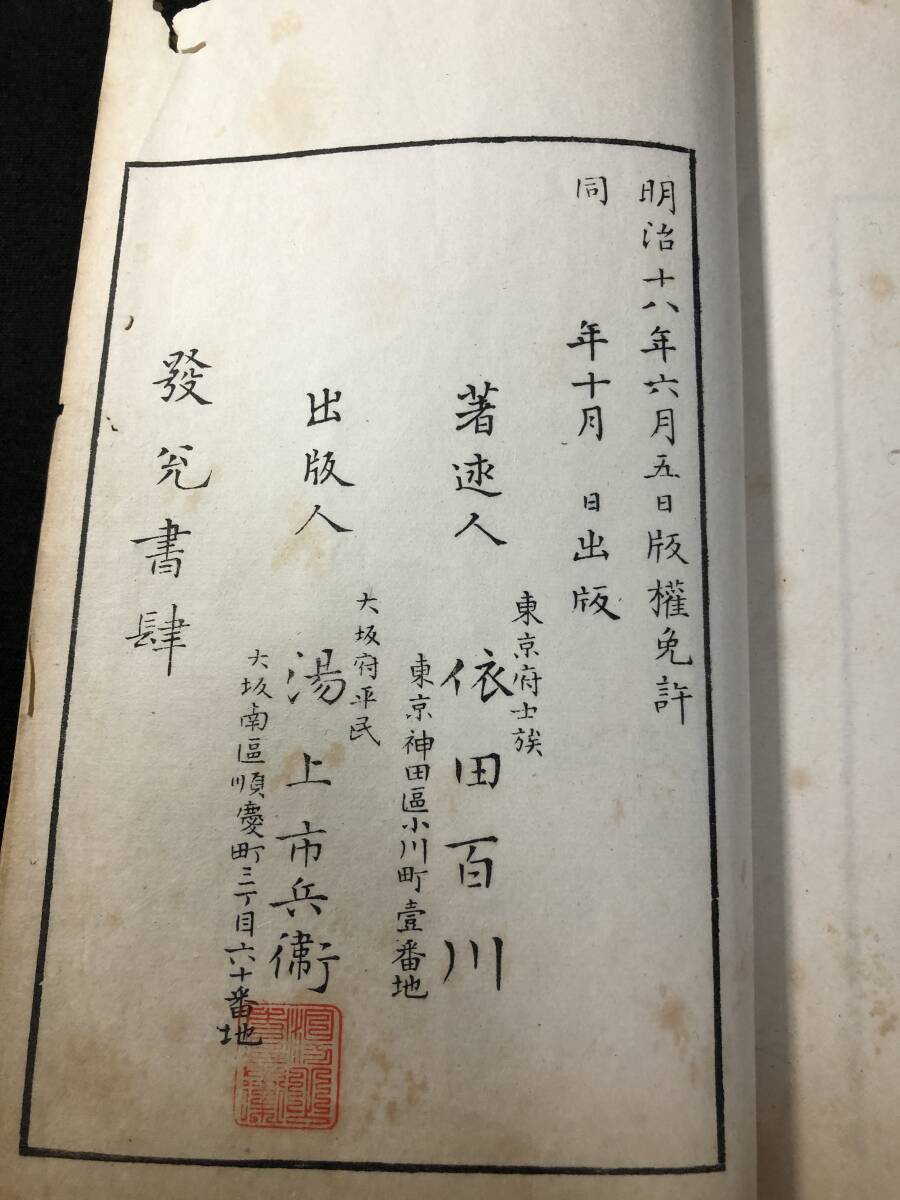 明治十八年六月五日版權免許
同　年十月　日出版
著述人
東京府士族
依田百川
東京神田區小川町壹番地
出版人
大坂府平民
湯上市兵衞
大坂南區順慶町三丁目六十番地
發兌書肆